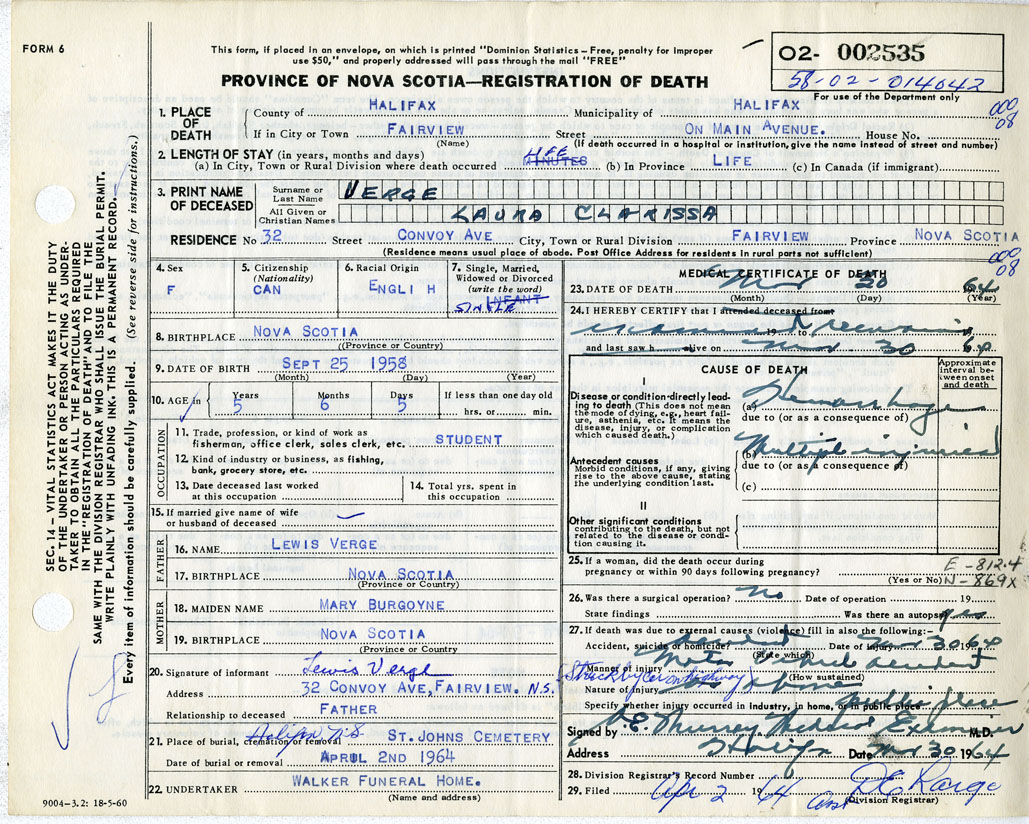 FORM 6
This form, if placed in an envelope, on which is printed "Dominion Statistics – Free, penalty for improper
use $50," and properly addressed will pass through the mail "FREE"
PROVINCE OF NOVA SCOTIA—REGISTRATION OF DEATH
02- 002535
58-02-014042
For use of the Department only
000
08
1. PLACE OF DEATH
County of HALIFAX Municipality of HALIFAX
If in City or Town FAIRVIEW Street ON MAIN AVENUE. House No.
(Name) (If death occurred in a hospital or institution, give the name instead of street and number)
2. LENGTH OF STAY (in years, months and days)
(a) In City, Town or Rural Division where death occurred LIFE MINUTES (b) In Province LIFE (c) In Canada (if immigrant)
3. PRINT NAME OF DECEASED
Surname or Last Name VERGE
All Given or Christian Names LAURA CLARISSA
RESIDENCE No. 32 Street CONVOY AVE City, Town or Rural Division FAIRVIEW Province NOVA SCOTIA
(Residence means usual place of abode. Post Office Address for residents in rural parts not sufficient)
000
08
4. Sex
F
5. Citizenship
(Nationality)
CAN
6. Racial Origin
ENGLI H
7. Single, Married,
Widowed or Divorced
(write the word)
INFANT
SINGLE
8. BIRTHPLACE NOVA SCOTIA
(Province or Country)
9. DATE OF BIRTH SEPT 25 1958
(Month) (Day) (Year)
10. AGE in
Years 5
Months 6
Days 5
If less than one day old
hrs. or min.
OCCUPATION
11. Trade, profession, or kind of work as
fisherman, office clerk, sales clerk, etc. STUDENT
12. Kind of industry or business, as fishing,
bank, grocery store, etc.
13. Date deceased last worked
at this occupation
14. Total yrs. spent in
this occupation
15. If married give name of wife
or husband of deceased
FATHER
16. NAME LEWIS VERGE
17. BIRTHPLACE NOVA SCOTIA
(Province or Country)
MOTHER
18. MAIDEN NAME MARY BURGOYNE
19. BIRTHPLACE NOVA SCOTIA
(Province or Country
20. Signature of informant Lewis Verge
Address 32 CONVOY AVE, FAIRVIEW. N.S.
Relationship to deceased FATHER
21. Place of burial, cremation or removal Halifax N.S. ST. JOHNS CEMETERY
Date of burial or removal APRIL 2ND 1964
22. UNDERTAKER WALKER FUNERAL HOME.
(Name and address)
9004–3.2: 18-5-60
MEDICAL CERTIFICATE OF DEATH
23. DATE OF DEATH Mar 30 1964
(Month) (Day) (Year)
24. I HEREBY CERTIFY that I attended deceased from
19 to
and last saw h alive on Mar. 30 64
CAUSE OF DEATH
Approximate
interval be-
tween onset
and death
Disease or condition directly lead-
ing to death (This does not mean
the mode of dying, e.g., heart fail-
ure, asthenia, etc. It means the
disease, injury, or complication
which caused death.)
(a) Hemorrhage
due to (or as a consequence of)
Antecedent causes
Morbid conditions, if any, giving
rise to the above cause, stating
the underlying condition last.
(b) Multiple injuries
due to (or as a consequence of)
(c)
II
Other significant conditions
contributing to the death, but not
related to the disease or condi-
tion causing it.
25. If a woman, did the death occur during
pregnancy or within 90 days following pregnancy?
(Yes or No)
E-812.4
N-869X
26. Was there a surgical operation? no Date of operation 19
State findings Was there an autopsy yes
27. If death was due to external causes (violence) fill in also the following:–
Accident, suicide or homicide? accident Date of injury Mar 30 1964
(State which)
Manner of injury Motor Vehicle accident
(Struck by car on highway) (How sustained)
Nature of injury as above
Specify whether injury occurred in industry, in home, or in public place public place
Signed by Murray Medical Examiner M.D.
Address Halifax Date Mar 30 1964
28. Division Registrar's Record Number
29. Filed Apr 2 1964
(Division Registrar)
SEC. 14 – VITAL STATISTICS ACT MAKES IT THE DUTY
OF THE UNDERTAKER OR PERSON ACTING AS UNDER-
TAKER TO OBTAIN ALL THE PARTICULARS REQUIRED
IN THE "REGISTRATION OF DEATH" AND TO FILE THE
SAME WITH THE DIVISION REGISTRAR WHO SHALL ISSUE THE BURIAL PERMIT.
WRITE PLAINLY WITH UNFADING INK. THIS IS A PERMANENT RECORD.
Every item of information should be carefully supplied. (See reverse side for instructions.)